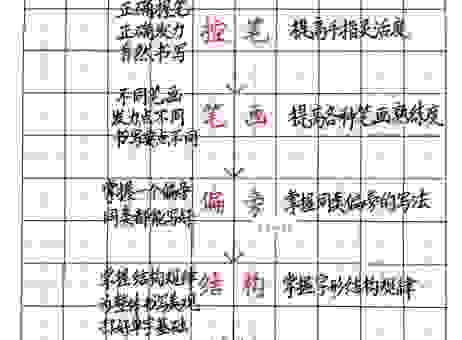 正确握笔
正确发力
自然书写
控笔
提高手指灵活度
不同笔画
发力点不同
书写要点不同
笔画
提高各种笔画熟练度
掌握一个偏旁
同类都能写好
偏旁
掌握同类偏旁的写法
掌握结构规律
为整体书写表现
打好单字基础
结构
掌握字形结构规律